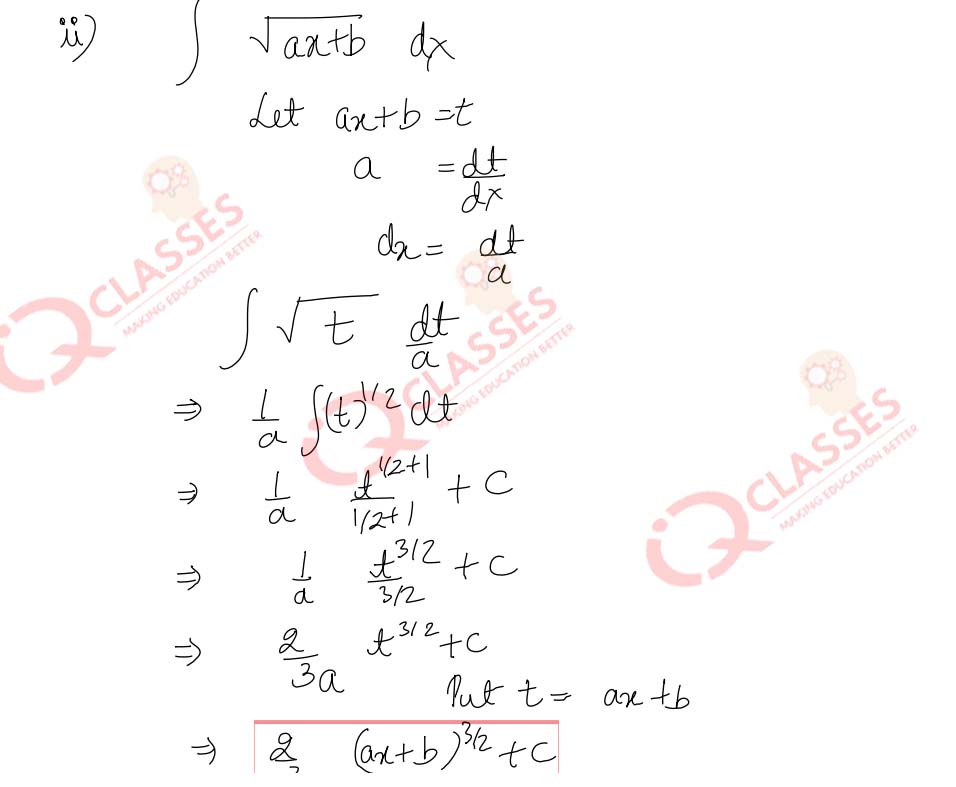 ii) ∫ √(ax+b) dx
Let ax+b = t
a = dt/dx
dx = dt/a
∫ √t dt/a
⇒ 1/a ∫(t)^1/2 dt
⇒ 1/a t^(1/2+1)/(1/2+1) + C
⇒ 1/a t^(3/2)/(3/2) + C
⇒ 2/3a t^3/2 + C
Put t = ax+b
⇒ 2 (ax+b)^3/2 + C
IQ CLASSES
MAKING EDUCATION BETTER
IQ CLASSES
MAKING EDUCATION BETTER
IQ CLASSES
MAKING EDUCATION BETTER